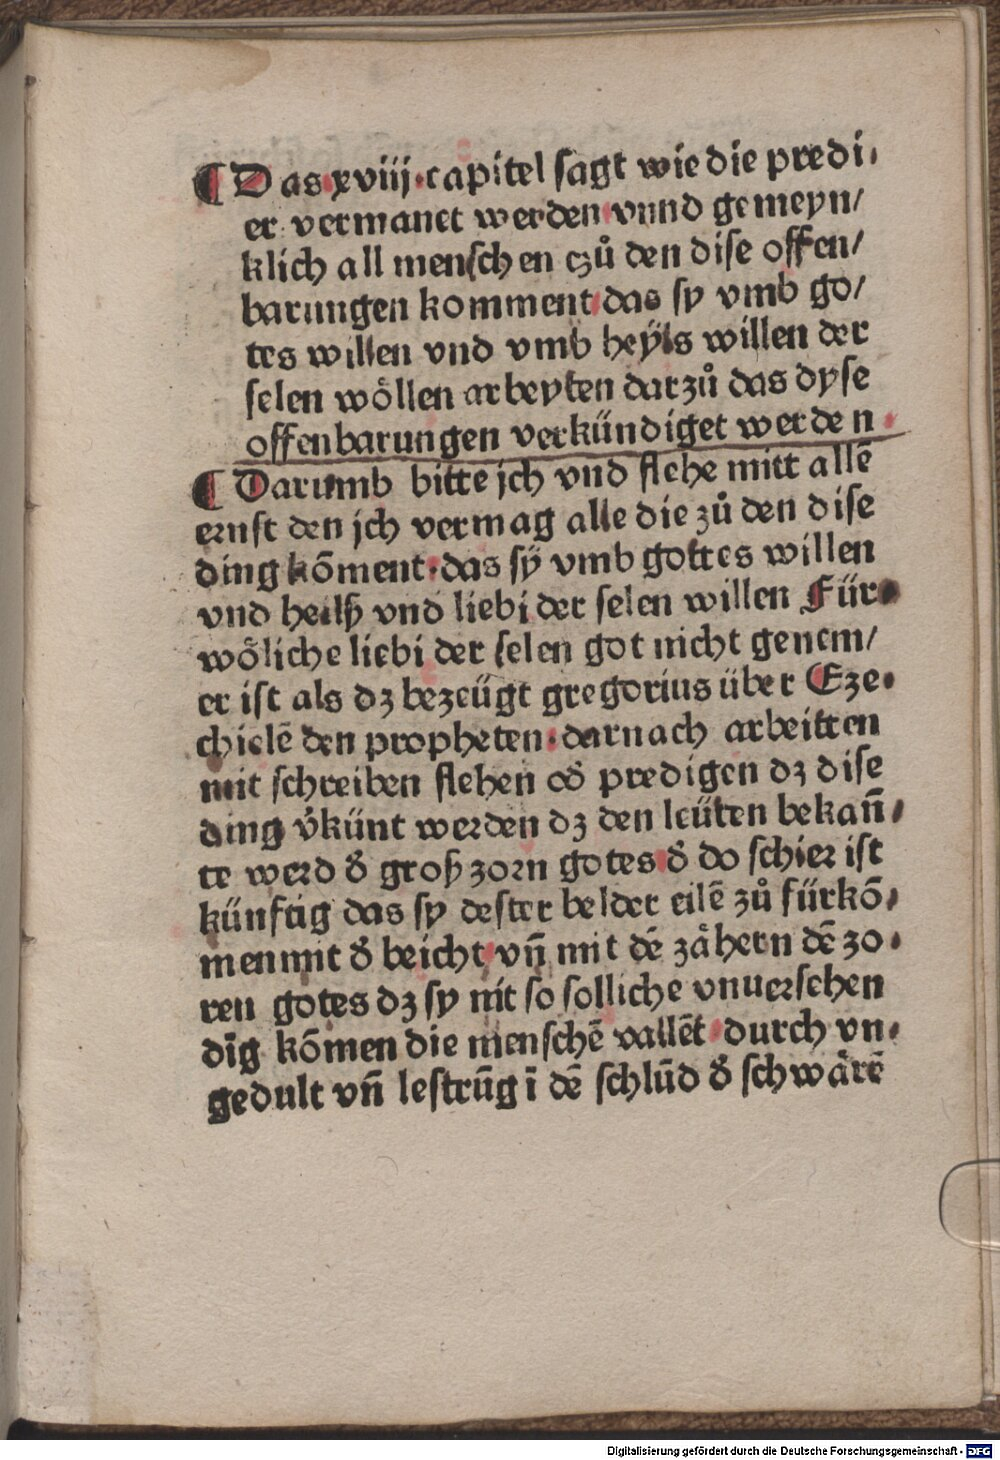 ¶ Das xviij·capitel sagt wie die predi⸗
er vermanet werden vnnd gemeyn/
klich all menschen czů den dise offen/
barungen komment das sy vmb go/
tes willen vnd vmb heyls willen der
selen wöllen arbeyten darzů das dyse
offenbarungen verkündiget werden
¶ Darumb bitte jch vnd flehe mitt allē
ernst den jch vermag alle die zů den dise
ding kōment·das sÿ vmb gottes willen
vnd heilß vnd liebi der selen willen Für⸗
wöliche liebi der selen got nicht genem/
er ist als dz bezeügt gregorius über Eze⸗
chielē den propheten·darnach arbeitten
mit schreiben flehen od̓ predigen dz dise
ding v̓künt werden dz den leüten bekan̄⸗
te werd d̓ groß zorn gotes d̓ do schier ist
künftig das sy dester belder eilē zů fürkō⸗
men mit d̓ beicht vn̄ mit dē zähern dē zo⸗
ren gotes dz sy nit so solliche vnuersehen
dīg kōmen die menschē vallēt durch vn⸗
gedult vn̄ lestrūg ī dē schlūd d̓ schwärē
Digitalisierung gefördert durch die Deutsche Forschungsgemeinschaft - DFG